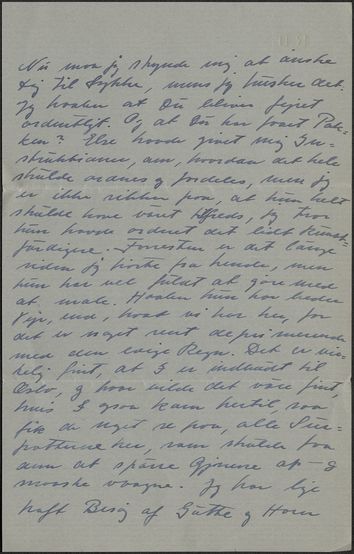 Nu maa jeg skynde mig at ønske
dig til Lykke, mens jeg husker det.
Jeg haaber at Du bliver fejret
ordentligt. Og at Du har faaet Pak-
ken? Else havde givet mig In-
struktioner, om, hvordan det hele
skulde ordnes og fordeles, men jeg
er ikke sikker paa, at hun helt
skulde have været tilfreds, jeg tror
hun havde ordnet det lidt
. Forresten er det længe
siden jeg hørte fra hende, men
hun har vel fuldt at gøre med
at male. Haaber hun har bedre
Vejr, end, hvad vi har her, for
det er noget rent deprimerende
med den evige Regn. Det er vir-
kelig fint, at I er indbudt til
Oslo, og hvor vilde det være fint,
hvis I ogsaa kom hertil, saa
fik de noget se paa, alle
her, som skulde faa
dem at spärre Øjnene op - &
maaske vaagne. Jeg har lige
haft Besøg af Gøthe og Horn